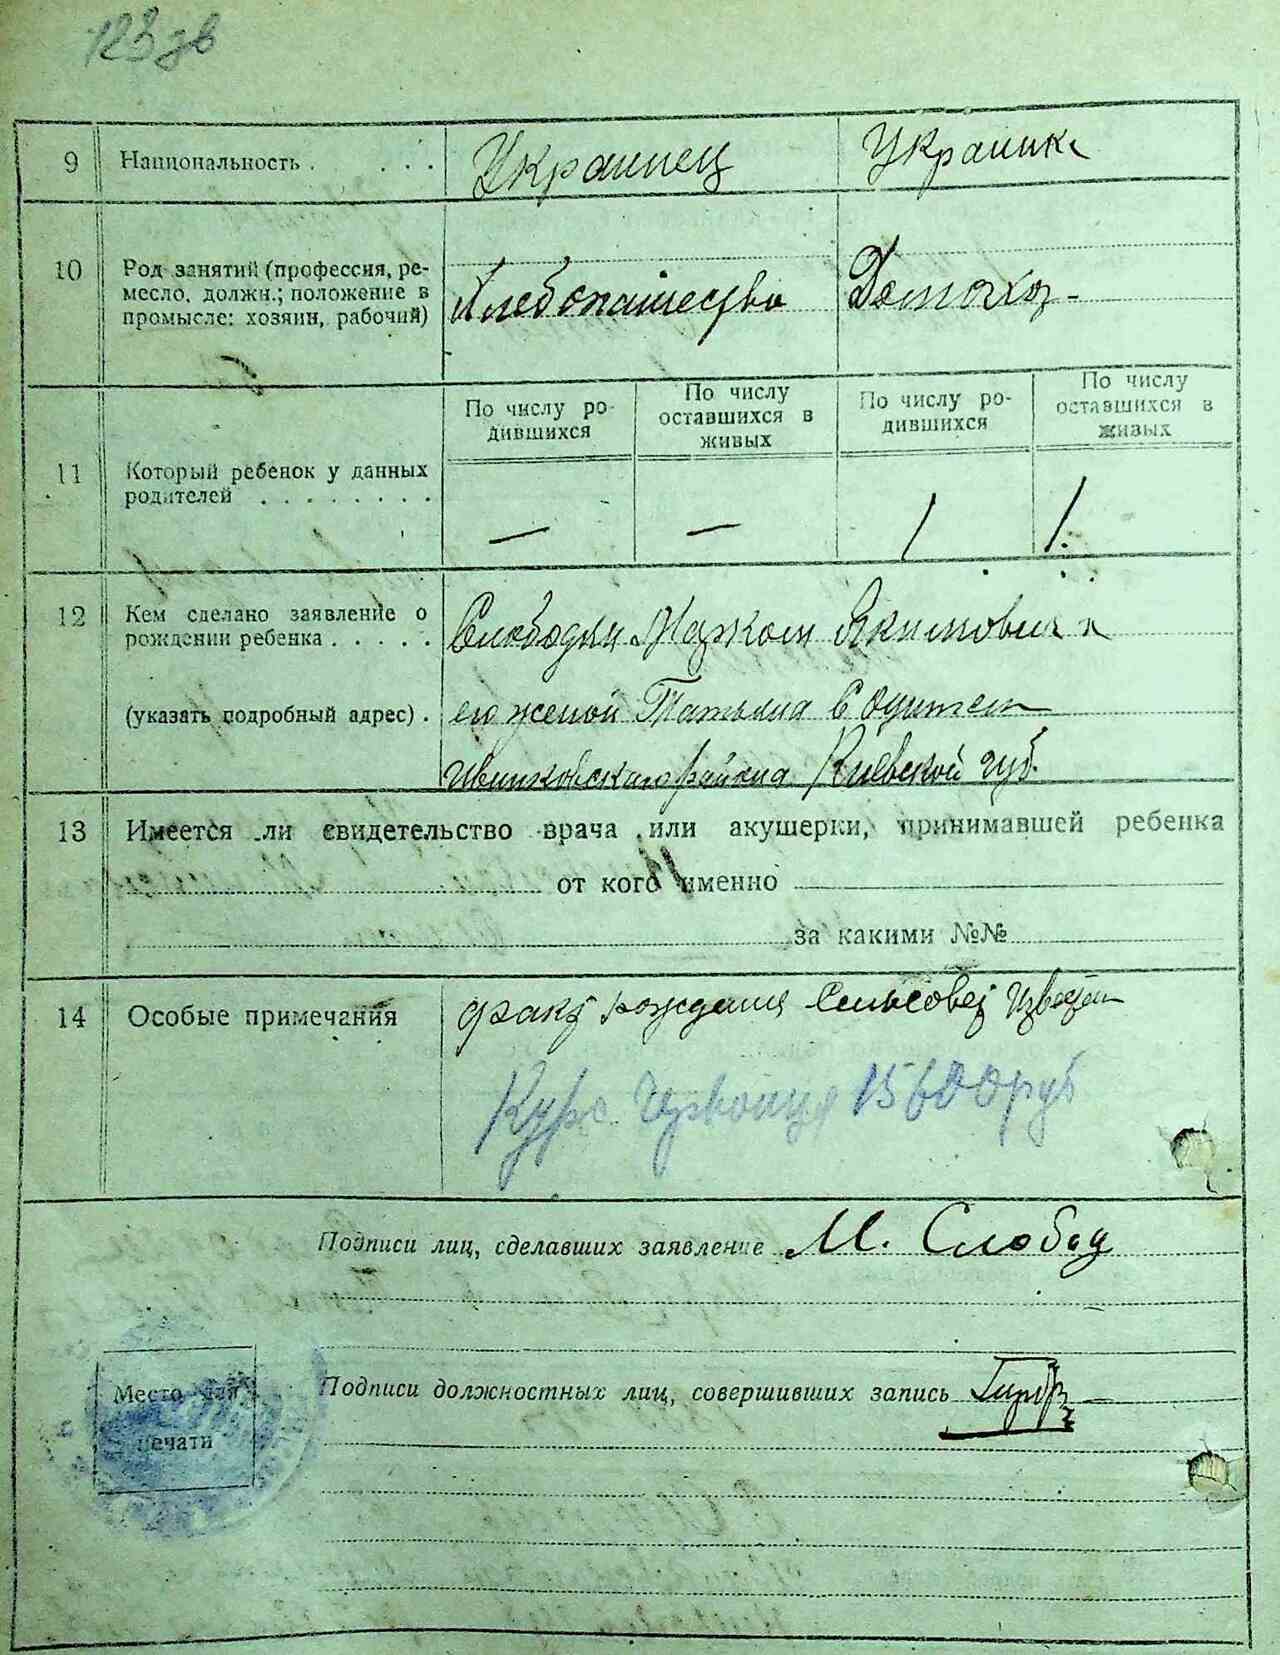 123 зв
9 Национальность . . . . Украинец Украинка
10 Род занятий (профессия, ре-
месло, должн.; положение в
промысле: хозяин, рабочий)
Хлебопашество Домохоз-
По числу ро-
дившихся
По числу
оставшихся в
живых
По числу ро-
дившихся
По числу
оставшихся в
живых
11 Который ребенок у данных
родителей . . . . . . . .
— — 1 1.
12 Кем сделано заявление о
рождении ребенка . . . . .
(указать подробный адрес) .
Слободян Марком Якимович и
его женой Татьяна в
района Киевской губ.
13 Имеется ли свидетельство врача или акушерки, принимавшей ребенка
от кого именно
за какими №№
14 Особые примечания
факт рождения Сельсовет
Курс червонца 15600 руб
Подписи лиц, сделавших заявление М. Слобод
Место для
печати
Подписи должностных лиц, совершивших запись